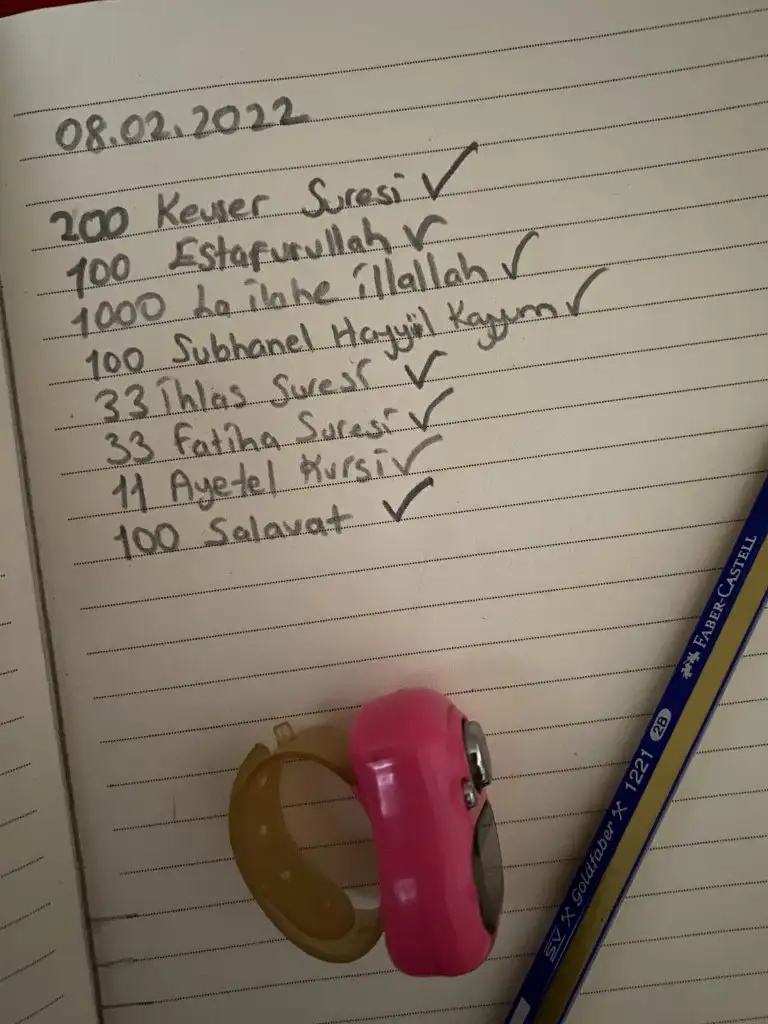 08.02.2022
200 Kevser Suresi ✓
100 Estafurullah ✓
1000 La ilahe illallah ✓
100 Subhanel Hayyül Kayyum ✓
33 ihlas Suresi ✓
33 fatiha Suresi ✓
11 Ayetel Kürsi ✓
100 Salavat ✓
FABER-CASTELL
SV X Goldfaber X 1221 2B